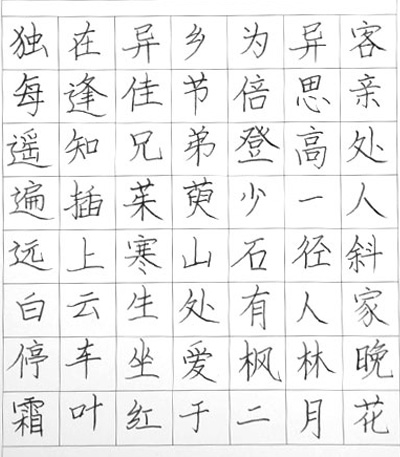 独在异乡为异客
每逢佳节倍思亲
遥知兄弟登高处
遍插茱萸少一人
远上寒山石径斜
白云生处有人家
停车坐爱枫林晚
霜叶红于二月花